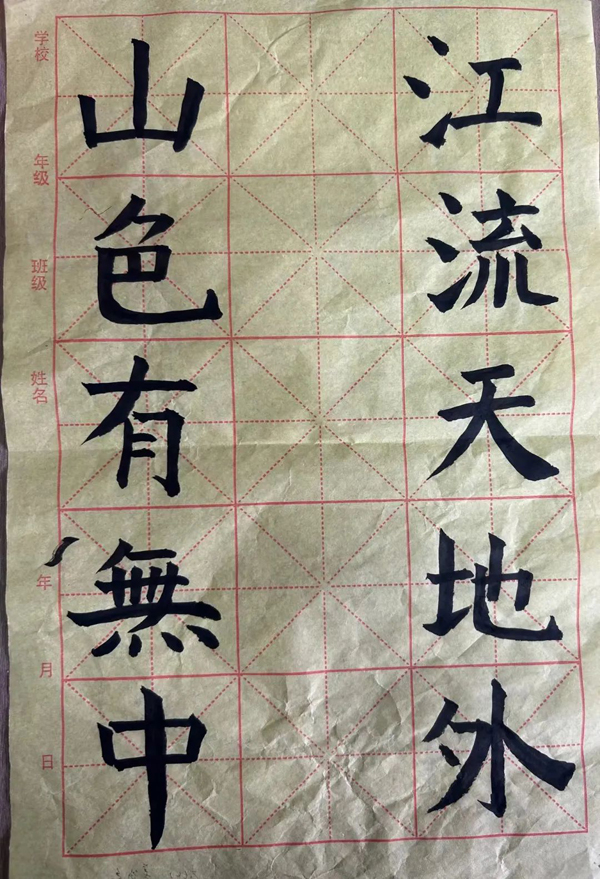 江流天地外
山色有無中
学校
年级
班级
姓名
年
月
日